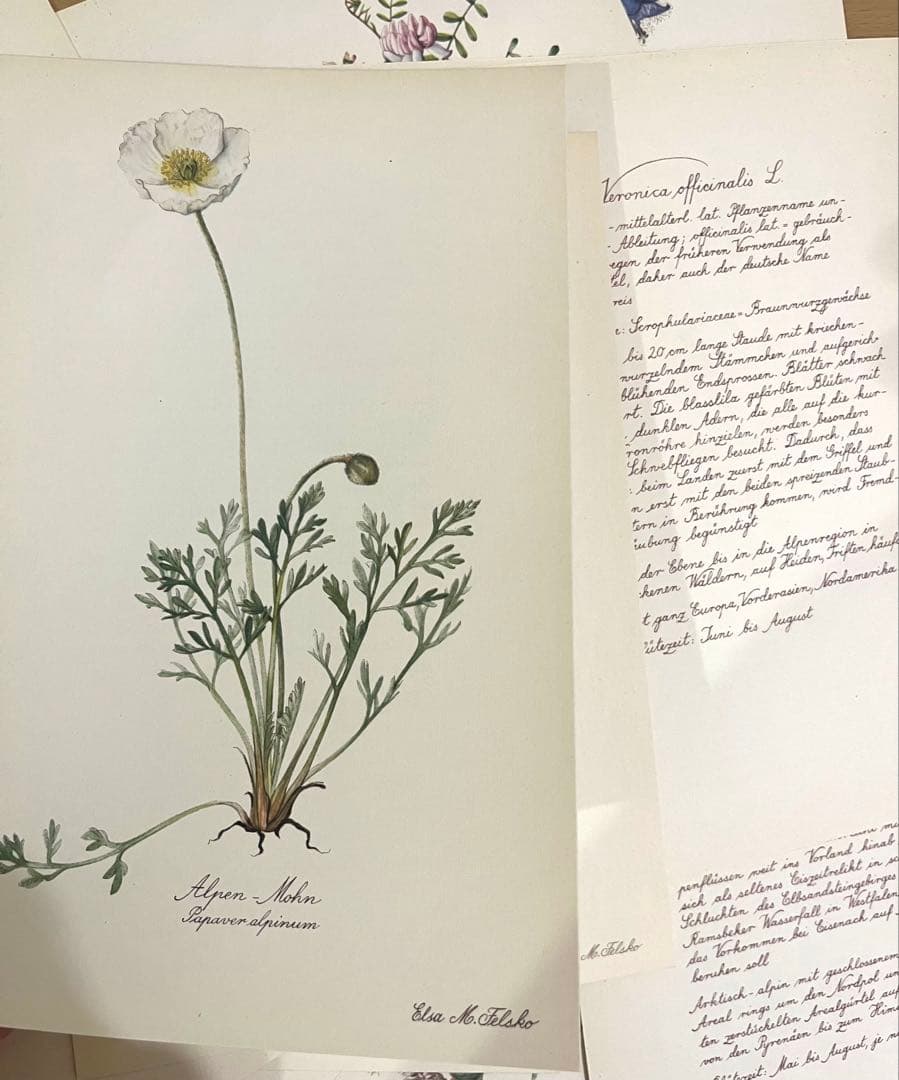 Alpen-Mohn
Papaver alpinum
Elsa M. Felsko
M. Felsko
Veronica officinalis L.
- mittelalterl. lat. Pflanzenname un-
Ableitung; officinalis lat. = gebräuch-
egen der früheren Verwendung als
el, daher auch der deutsche Name
reis
e: Scrophulariaceae = Braunwurzgewächse
bis 20 cm lange Staude mit kriechen-
wurzelndem Stämmchen und aufgerich-
blühenden Endsprossen. Blätter schwach
rt. Die blasslila gefärbten Blüten mit
dunklen Adern, die alle auf die kur-
ronröhre hinzielen, werden besonders
Schwebfliegen besucht. Dadurch, dass
beim Landen zuerst mit dem Griffel und
n erst mit den beiden spreizenden Staub-
tern in Berührung kommen, wird Fremd-
ubung begünstigt
der Ebene bis in die Alpenregion in
kenen Wäldern, auf Heiden, Triften häufi
t ganz Europa, Vorderasien, Nordamerika
ütezeit: Juni bis August
penflüssen weit ins Vorland hinab
sich als seltenes Eiszeitrelikt in sc
Schluchten des Elbsandsteingebirges
Ramsbeker Wasserfall in Westfalen
das Vorkommen bei Eisenach auf-
beruhen soll
Arktisch-alpin mit geschlossenem
Areal rings um den Nordpol un
ten zerstückelten Arealgürtel auf
von den Pyrenäen bis zum Him
Mai bis August, je n